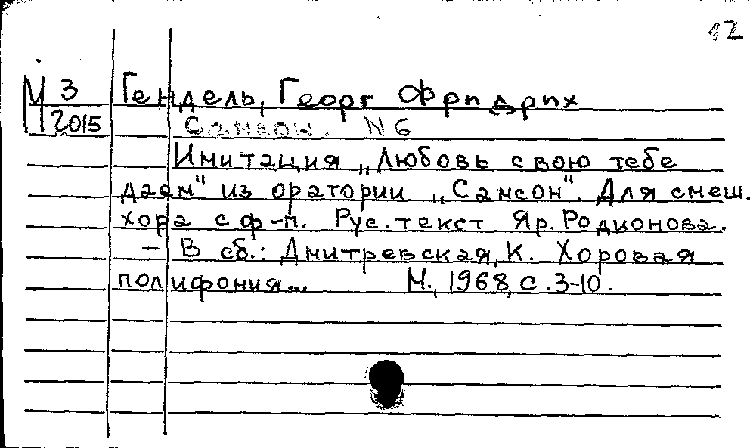 12
М 3 Гендель, Георг Фридрих
2015 Самсон. N 6
Имитация „Любовь свою тебе
даам" из оратории „Самсон". Для смеш.
хора с ф-п. Рус. текст Яр. Родионова.
— В сб.: Дмитревская, К. Хоровая
полифония... М., 1968, с. 3-10.